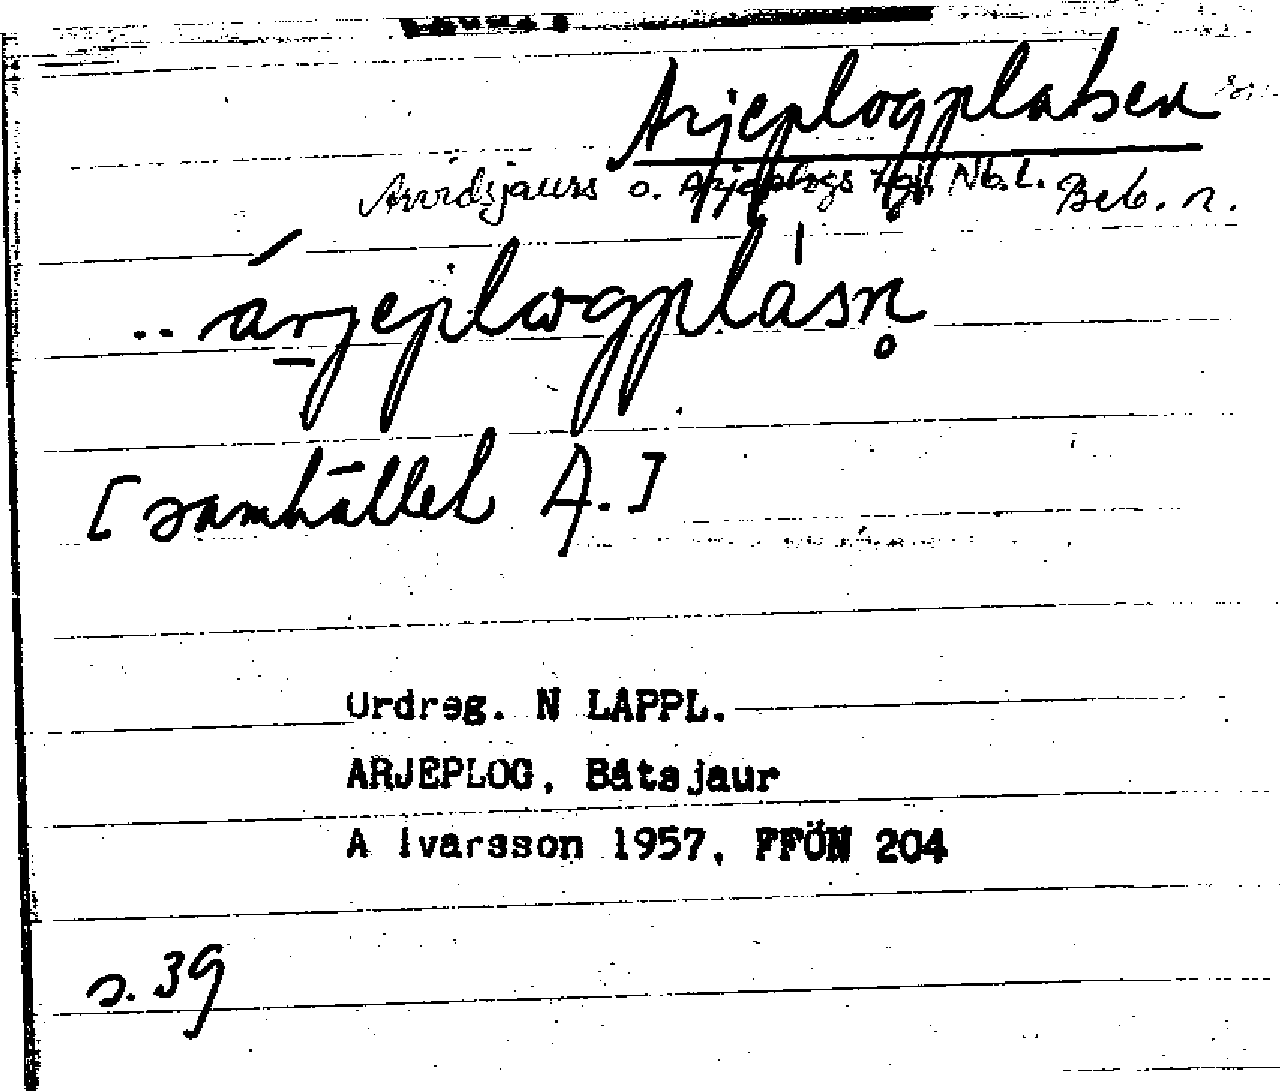 Arjeplogplatsen
Arvidsjaurs o. Arjeplogs tgl. Nb.l. Beb. n.
.. árjeplogplásn̥
[samhället A.]
Ordreg. N LAPPL.
ARJEPLOG, Båtsjaur
A Ivarsson 1957, FFÖN 204
s. 39